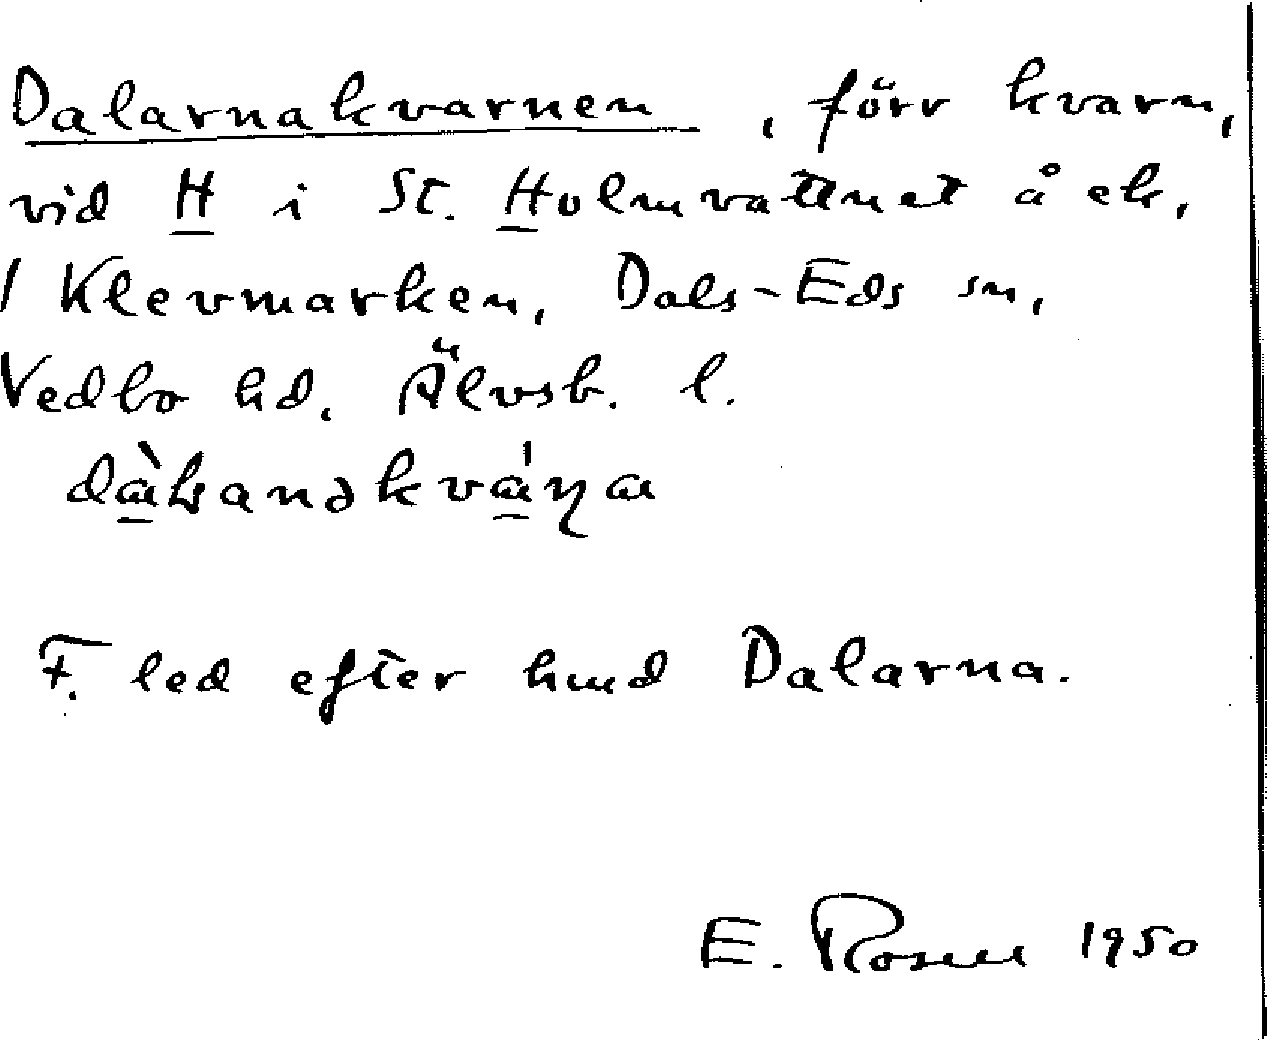 Dalarnakvarnen, förr kvarn,
vid H i St. Holmvattnet å ek.
/ Klevmarken, Dals-Eds sn,
Vedbo hd. Älvsb. l.
F. led efter hund Dalarna.
E. Rosell 1950